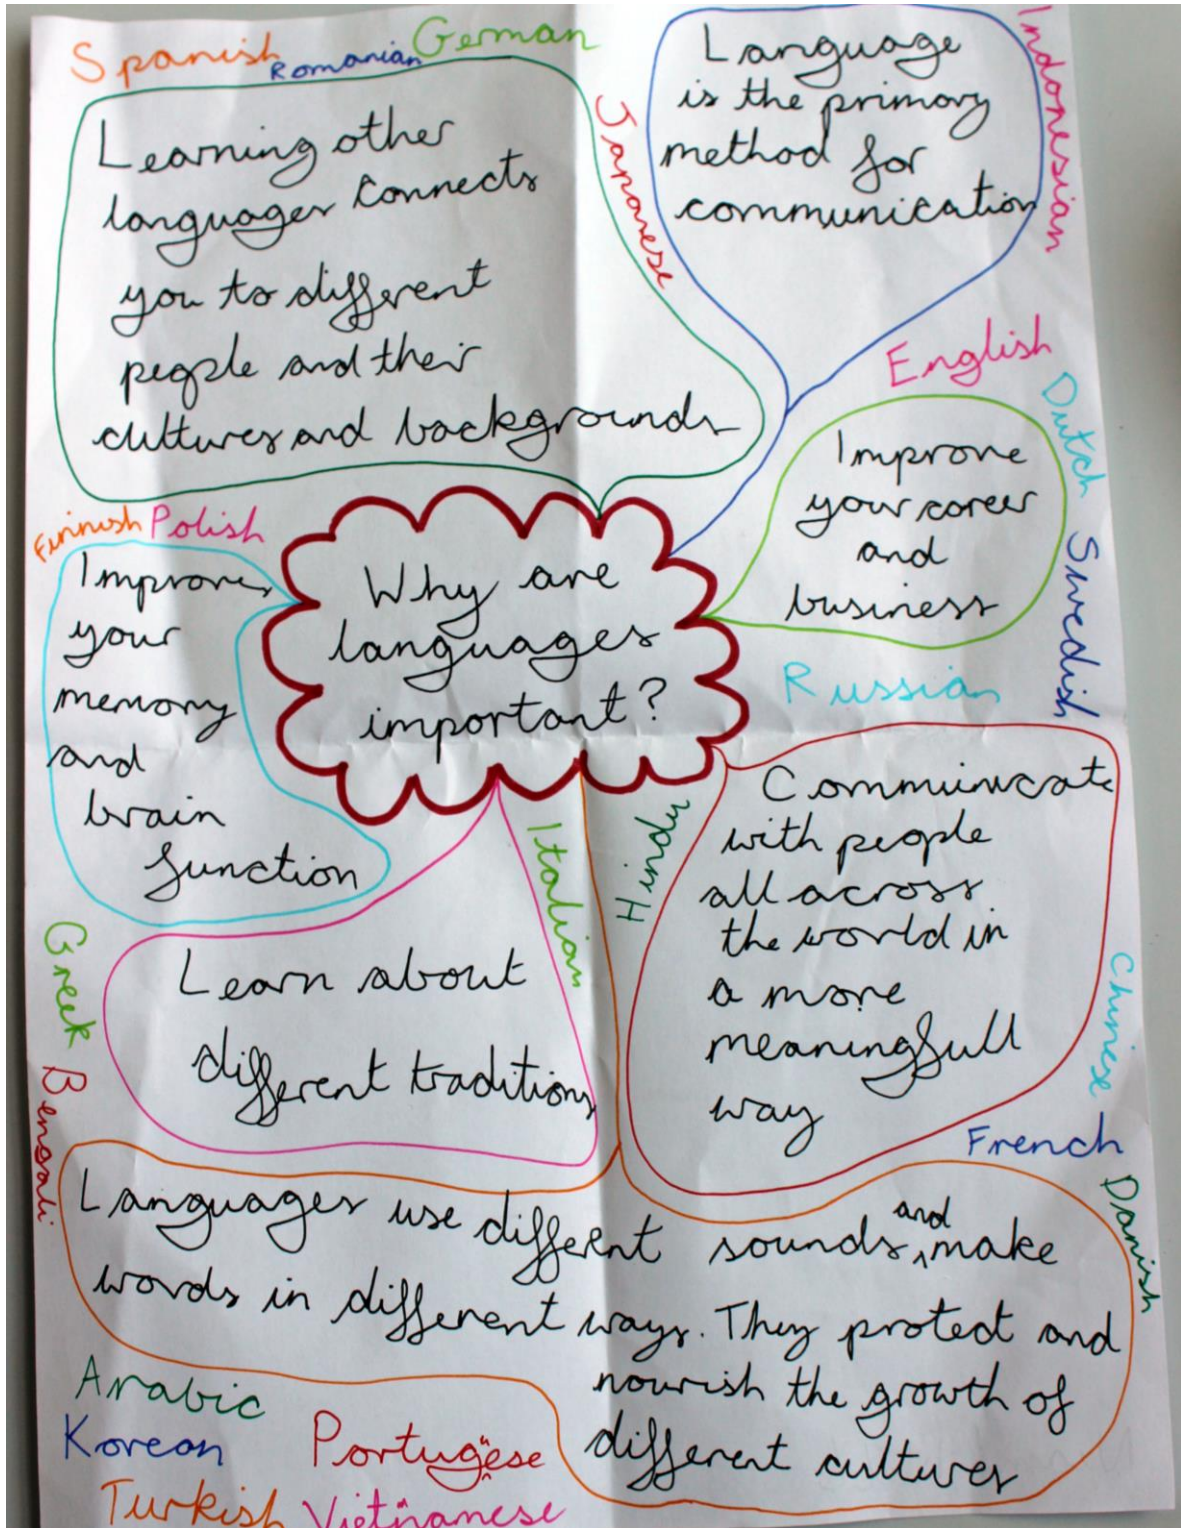 Spanish
Romanian
German
Learning other
languages connects
you to different
people and their
cultures and backgrounds
Japanese
Language
is the primary
method for
communication
Indonesian
English
Improve
your career
and
business
Dutch
Swedish
Russian
Finnish
Polish
Improves
your
memory
and
brain
function
Why are
languages
important?
Communicate
with people
all across
the world in
a more
meaningfull
way
Hindy
Italian
Learn about
different traditions
Greek
Bengali
Chinese
French
Danish
Languages use different sounds and make
words in different ways. They protect and
nourish the growth of
different cultures
Arabic
Korean
Portugese
Turkish
Vietnamese